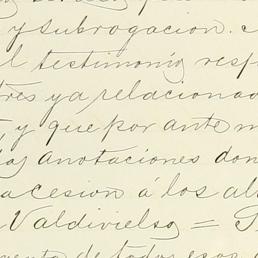 y subrogacion.
l testimonio resp
res ya relacionad
y que por ante m
las anotaciones don
acesion á los al
Valdivielso = 
mento de todos esos